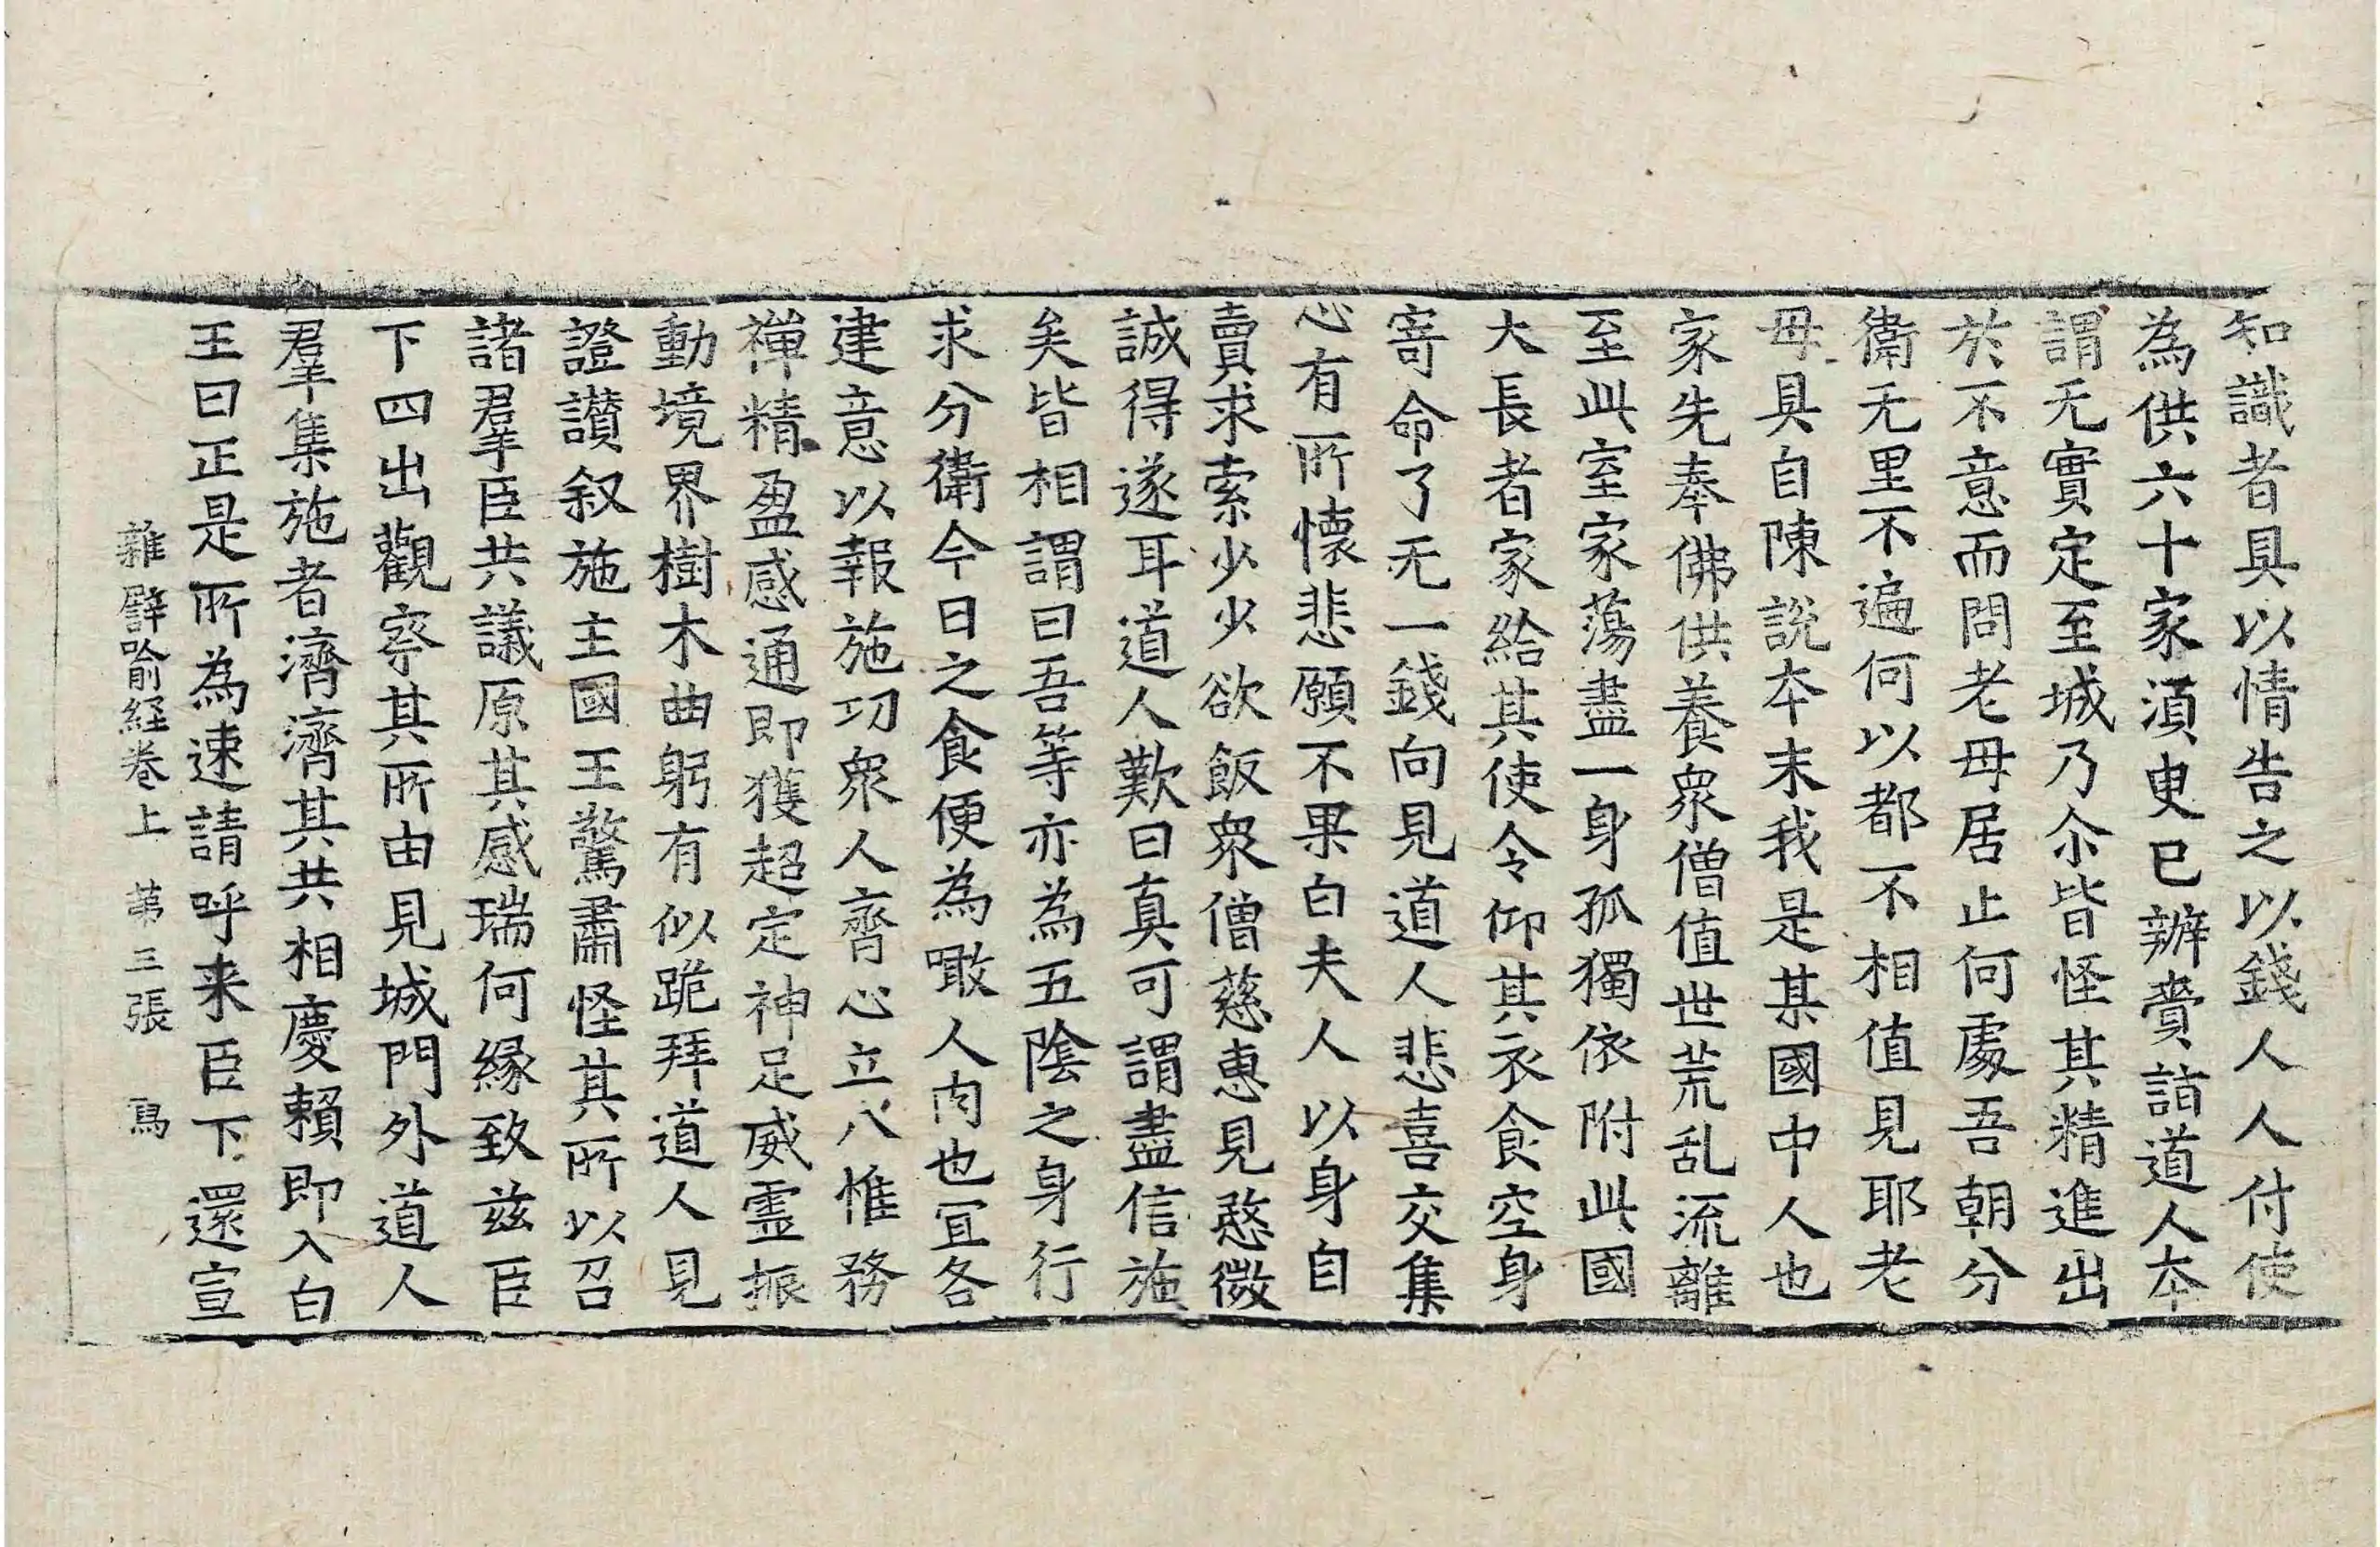 知識者具以情告之以錢人人付使
為供六十家湏臾已辦賷詣道人本
謂无實定至城乃尒皆怪其精進出
於不意而問老母居止何處吾朝分
衛无里不遍何以都不相值見耶老
母具自陳說本末我是某國中人也
家先奉佛供養衆僧值世荒乱流離
至此室家蕩盡一身孤獨依附此國
大長者家給其使令仰其衣食空身
寄命了无一錢向見道人悲喜交集
心有所懷悲願不果白夫人以身自
賣求索少少欲飯衆僧慈惠見愍微
誠得遂耳道人歎曰真可謂盡信施
矣皆相謂曰吾等亦為五陰之身行
求分衛今日之食便為噉人肉也宜各
建意以報施功衆人齊心立八惟務
禪精盈感通即獲超定神足威霊振
動境界樹木曲躬有似跪拜道人見
證讚叙施主國王驚肅怪其所以召
諸羣臣共議原其感瑞何緣致兹臣
下四出觀察其所由見城門外道人
羣集施者濟濟其共相慶賴即入白
王曰正是所為速請呼来臣下還宣
雜譬喻経卷上 第三張 寫